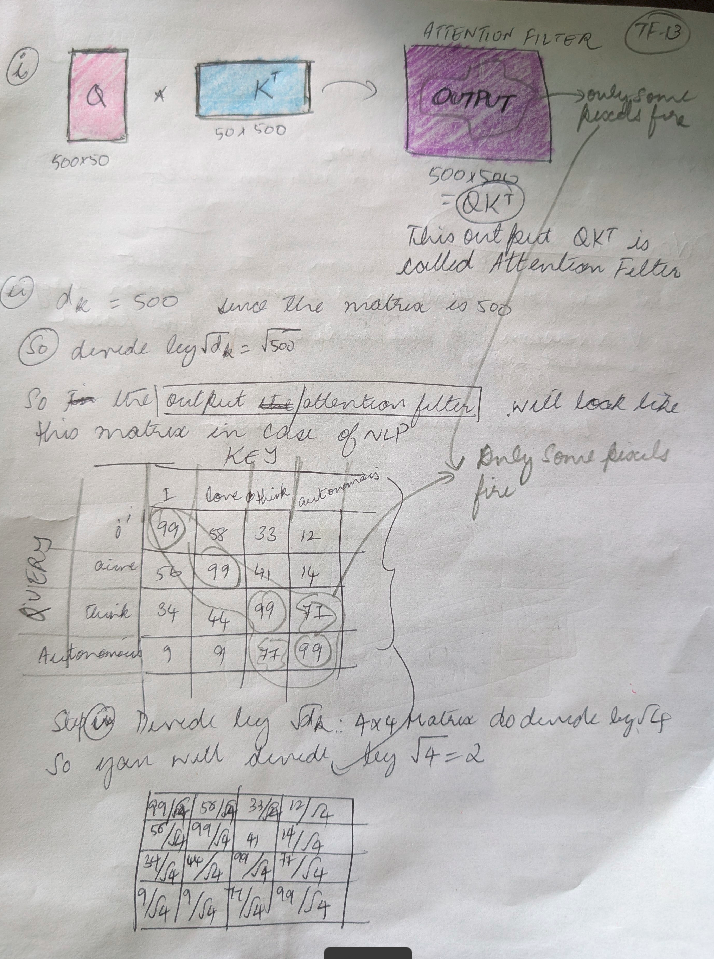 ATTENTION FILTER
TF-13
i
Q * K^T
OUTPUT
→ only some
pixels fire
500x50
50x500
500x500
= QK^T
This output QK^T is
called Attention Filter
ii
d_k = 500 since the matrix is 500
So devide by √d_k = √500
So the output attention filter will look like
this matrix in case of NLP
KEY
Only some pixels
fire
QUERY
I love think autonomous
i 99 58 33 12
56 99 41 14
Think 34 44 99 77
Autonomous 9 9 77 99
Step Devide by √d_k :. 4x4 Matrix do devide by √4
So you will devide by √4 = 2
99/√4 58/√4 33/√4 12/√4
56/√4 99/√4 41 14/√4
34/√4 44/√4 99/√4 77/√4
9/√4 9/√4 77/√4 99/√4